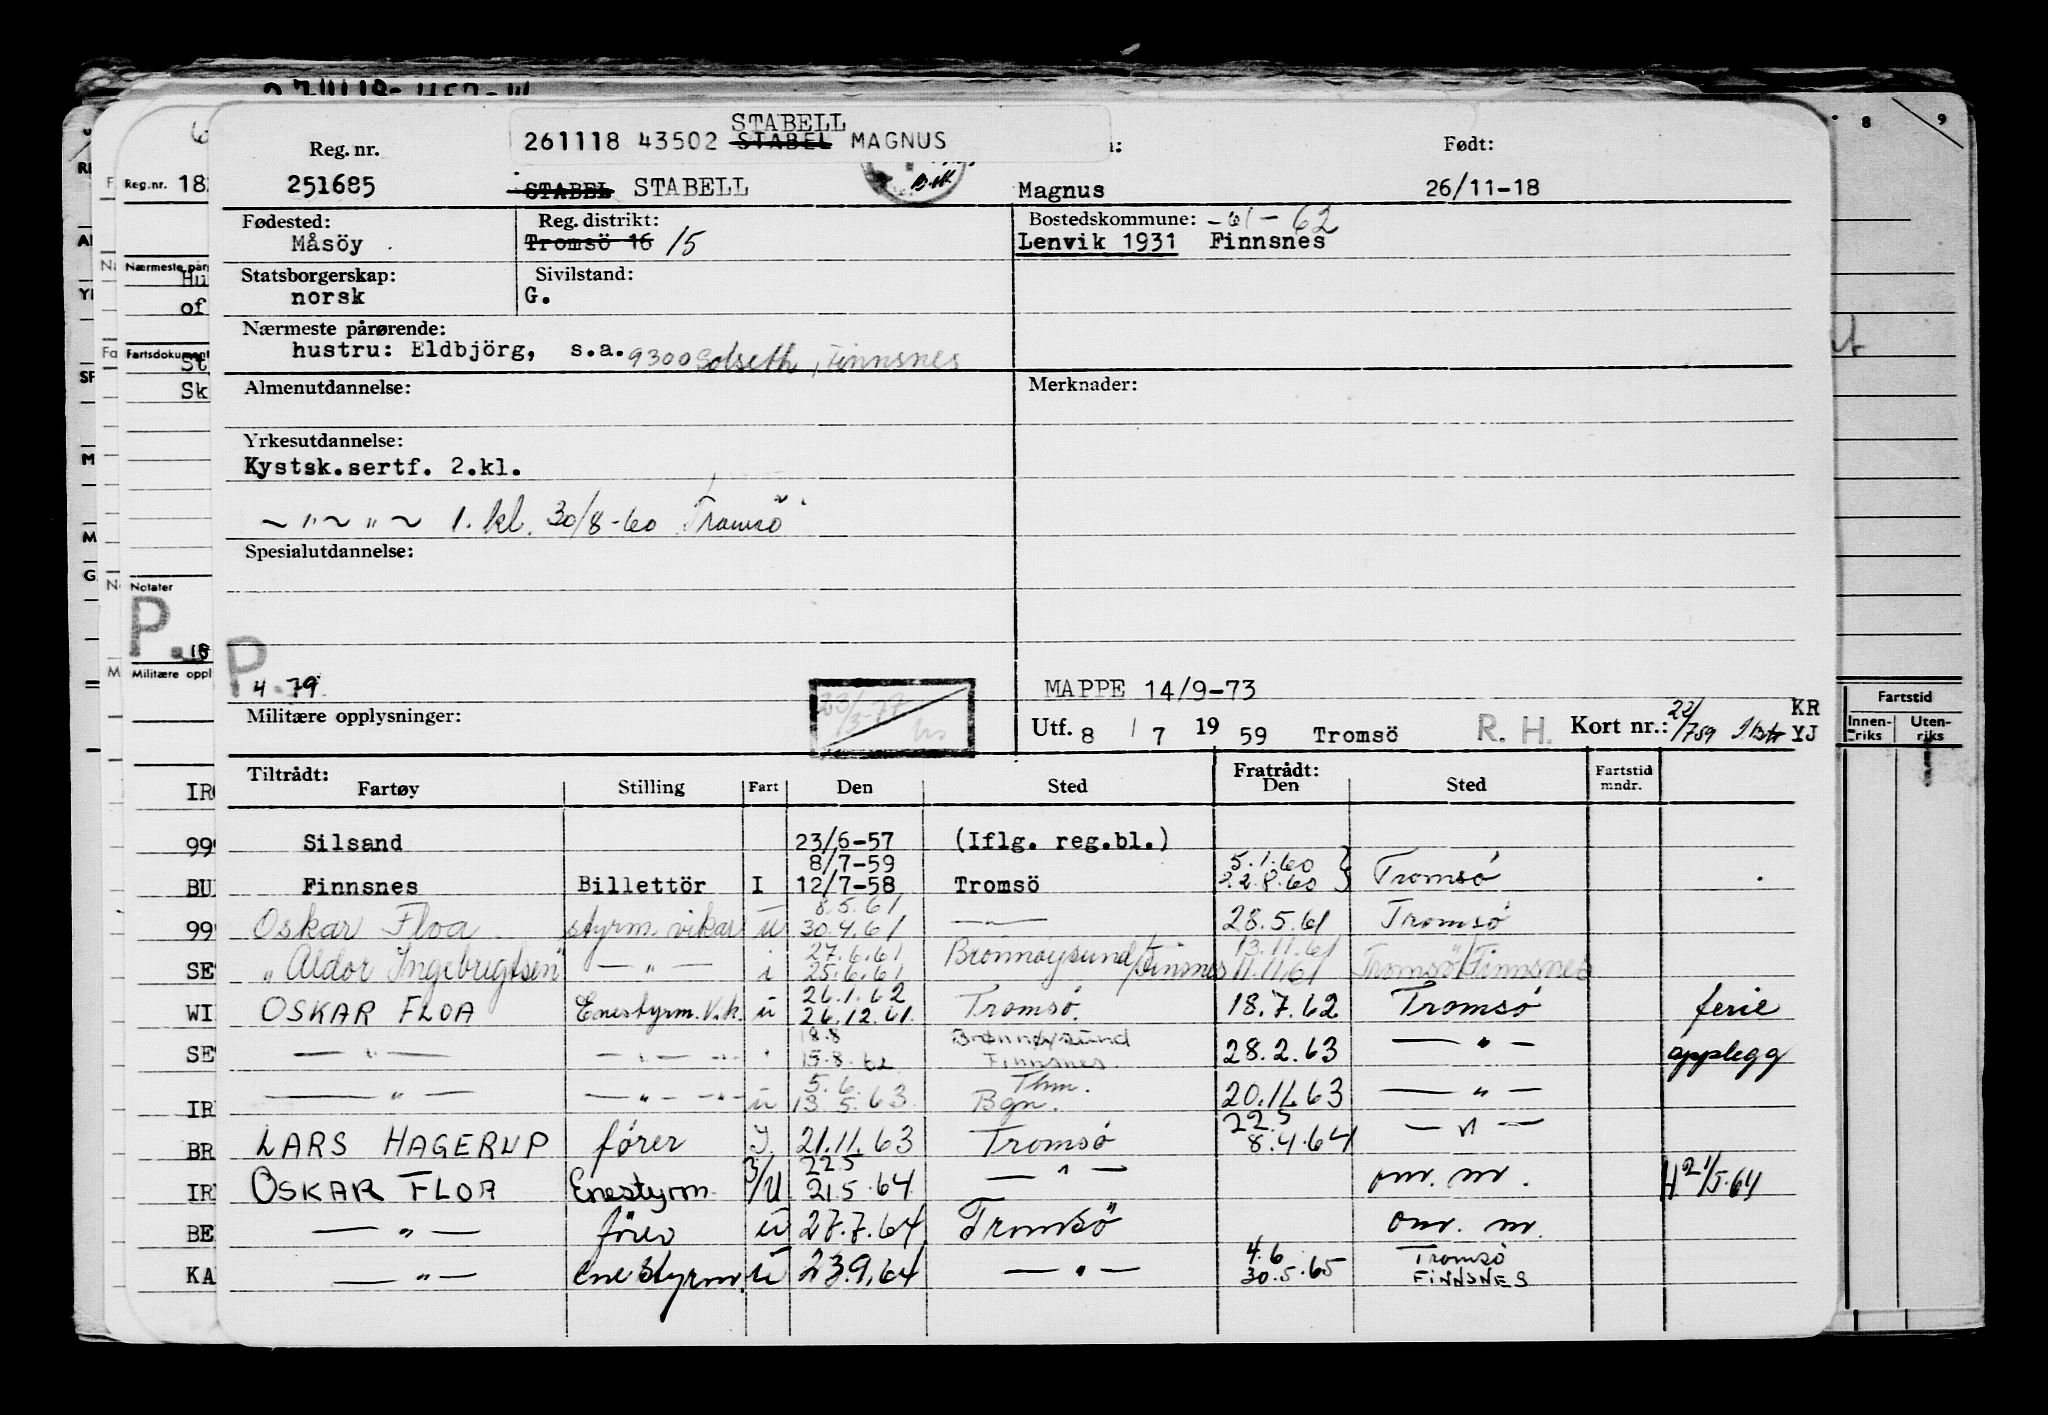 STABELL
261118 43502 STABEL MAGNUS
Reg. nr. Født:
251685 STABEL STABELL Magnus 26/11-18
Fødested: Reg. distrikt: Bostedskommune: -61-62
Måsöy Tromsö 16 15 Lenvik 1931 Finnsnes
Statsborgerskap: Sivilstand:
norsk G.
Nærmeste pårørende:
hustru: Eldbjörg, s.a. 9300 Solseth, Finnsnes
Almenutdannelse: Merknader:
Yrkesutdannelse:
Kystsk.sertf. 2.kl.
~ " ~ " ~ 1. kl. 30/8-60 Tromsö
Spesialutdannelse:
P 4.79. MAPPE 14/9-73
Militære opplysninger: Utf. 8 / 7 1959 Tromsö R. H. Kort nr.: 22/759 KR
YJ
Tiltrådt: Fratrådt:
Fartøy Stilling Fart Den Sted Den Sted Fartstid mndr.
Silsand 23/6-57 (Iflg. reg.bl.)
8/7-59 5.1.60
Finnsnes Billettör I 12/7-58 Tromsö 22.8.60 Tromsö
8.5.61
Oskar Floa styrm. vikar u 30.4.61 — " — 28.5.61 Tromsö
27.6.61 13.11.61
"Aldor Ingebrigtsen" — " — i 25.6.61 Brønnøysund/Finnsnes 11.11.61 Tromsö/Finnsnes
26.1.62
OSKAR FLOA Enestyrm. Vik. u 26.12.61. Tromsö. 18.7.62 Tromsö ferie
18.8 Brønnøysund
— " — — " — 15.8.62 Finnsnes. 28.2.63 — " — opplegg
5.6. Thm.
— " — — " — u 13.5.63 Bgn. 20.11.63 — " —
22.5
LARS HAGERUP fører I 21.11.63 Tromsö 8.4.64 — " —
22.5
OSKAR FLOA Enestyrm. 3/U 21.5.64 — " — om. m. H 21/5.64
— " — förer u 27.7.64 Tromsö om. m.
4.6 Tromsö
— " — Enestyrm. u 23.9.64 — " — 30.5.65 FINNSNES
Reg.nr. 18
Nærmeste pår
Hu
of
Fartsdokument
St
Sk
Notater
P
Militære oppl
8 9
Fartstid
Innen-riks Uten-riks